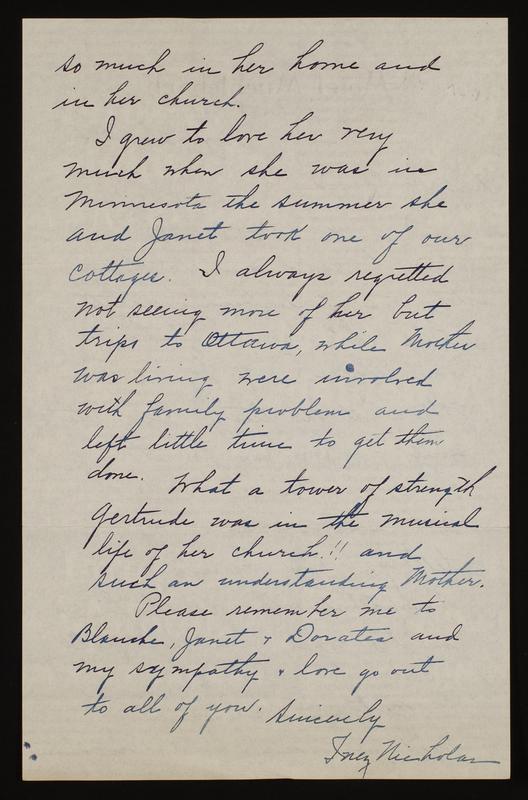 so much in her home and
in her church.
I grew to love her very
much when she was in
Minnesota the summer she
and Janet took one of our
cottages. I always regretted
not seeing more of her but
trips to Ottawa, while Mother
was living were involved
with family problem and
left little time to get them
done. What a tower of strength
Gertrude was in the musical
life of her church!! and
such an understanding Mother.
Please remember me to
Blanche, Janet + and
my sympathy + love go out
to all of you. Sincerely
Inez Nicholas